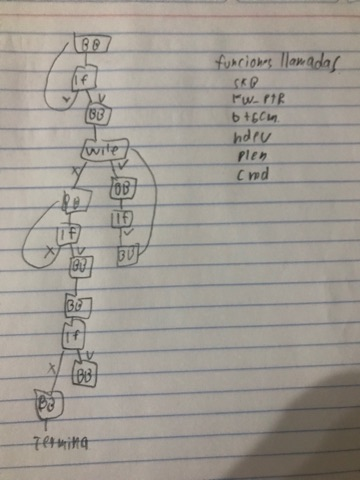 BB
If
x v
BB
wile
x v
BB
BB
If
If
v
x v
BU
BU
BB
If
x v
BB
BB
Termina
funciones llamadas
SKB
hdev
plen
cmd